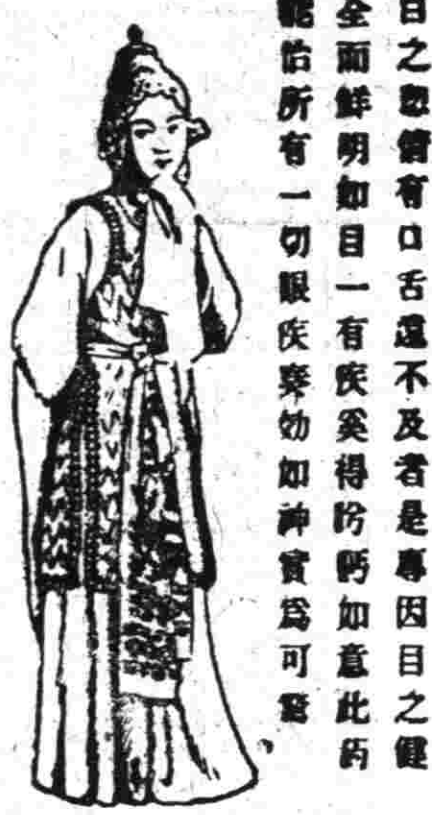 目之慇情有口舌還不及者是專因目之健
全而鮮明如目一有疾奚得盻眄如意此药
能治所有一切眼疾奏効如神實爲可驚